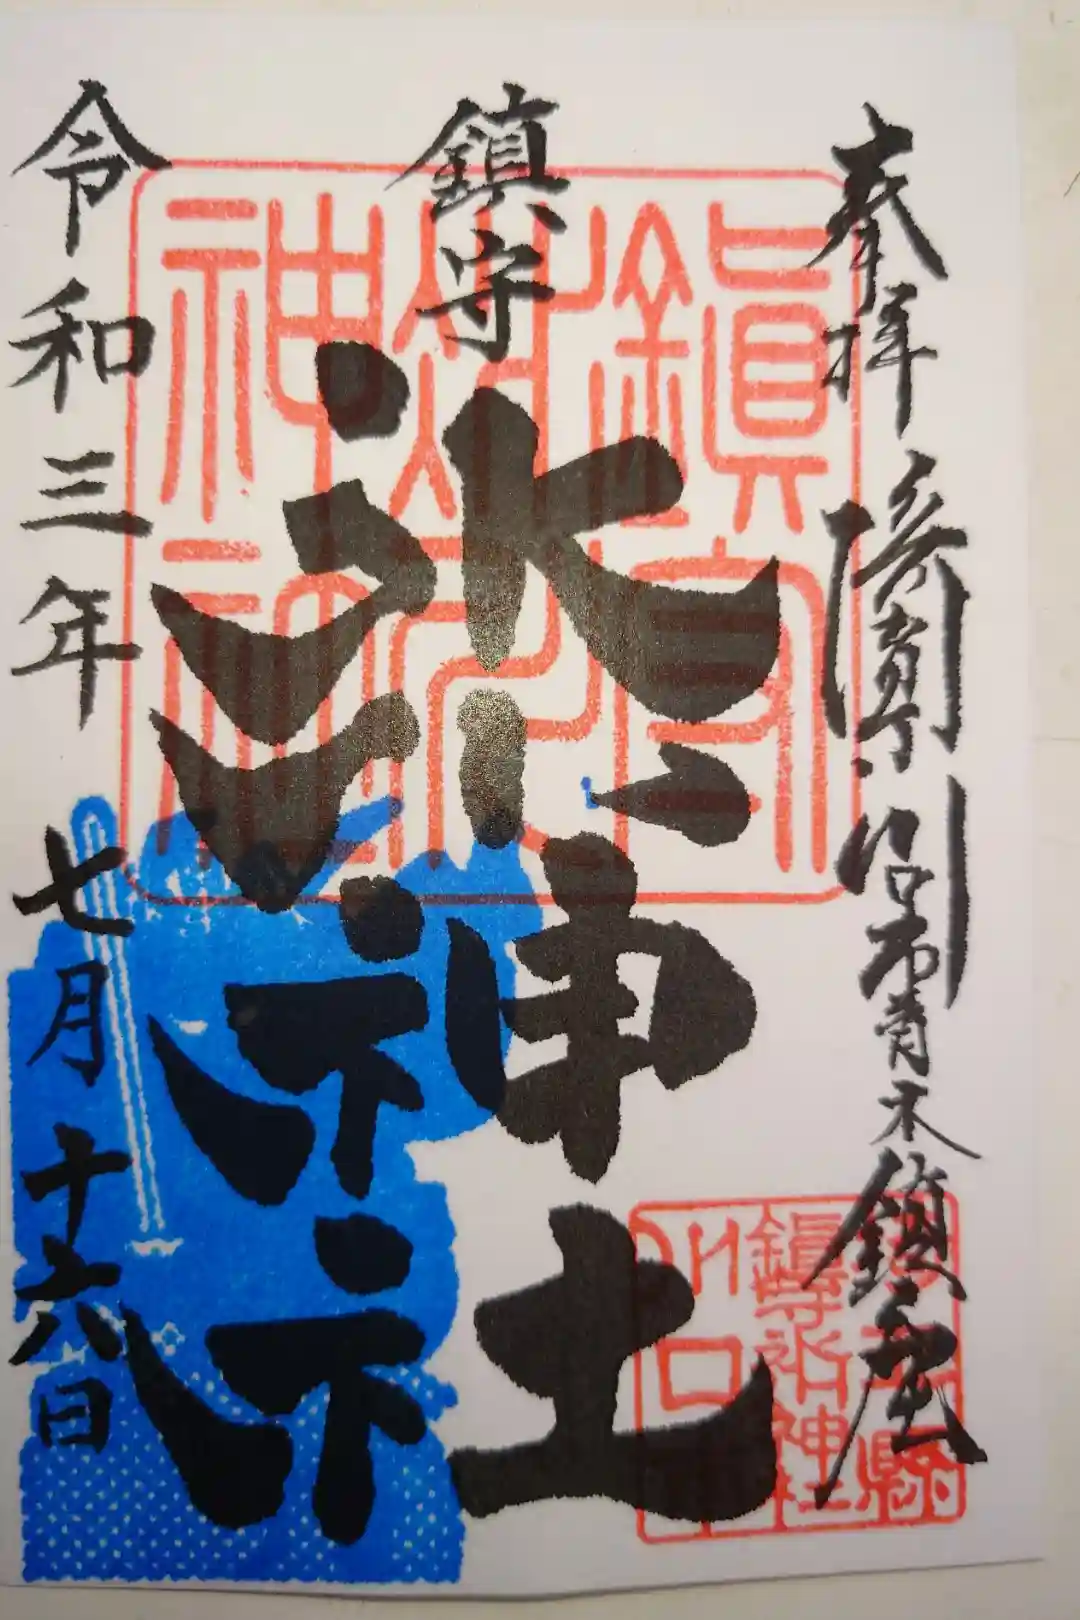 奉拝
青木鎮座
鎮守
氷川神社
令和三年
七月十六日
鎮守
氷川
神社
縣
鎮守氷川神社
川口